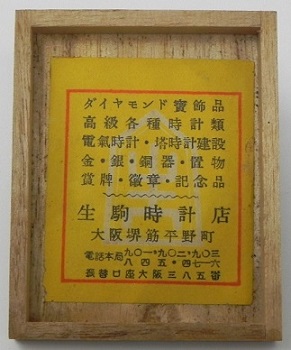 ダイヤモンド寳飾品
高級各種時計類
電氣時計・塔時計建設
金・銀・銅器・置物
賞牌・徽章・記念品
生駒時計店
大阪堺筋平野町
電話本局九〇一・九〇二・九〇三
八四五・四七一六
振替口座大阪三八五番